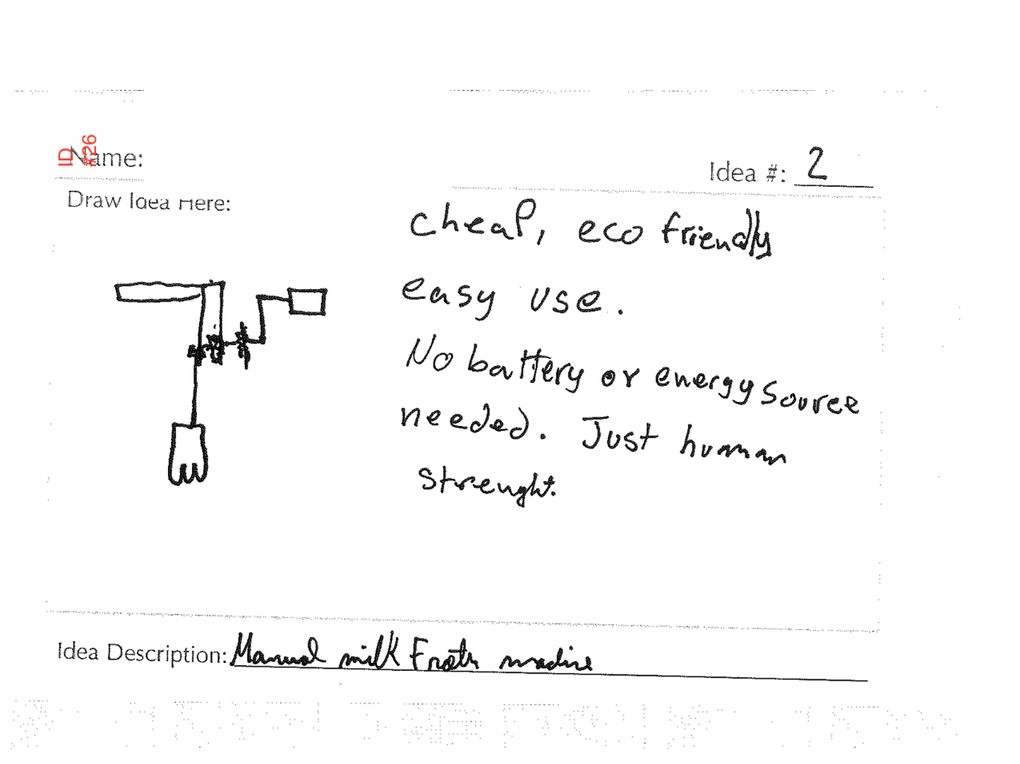 ID #26
Name:
Idea #: 2
Draw Idea Here:
cheap, eco friendly
easy use.
No battery or energy source
needed. Just human
strenght.
Idea Description: Manual milk Froth madine